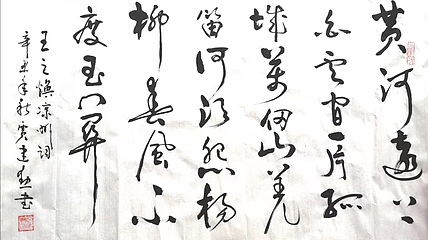 黄河遠上
白雲间一片孤
城萬仞山羌
笛何须怨楊
柳春風不
度玉门关
王之涣凉州词
年秋建書